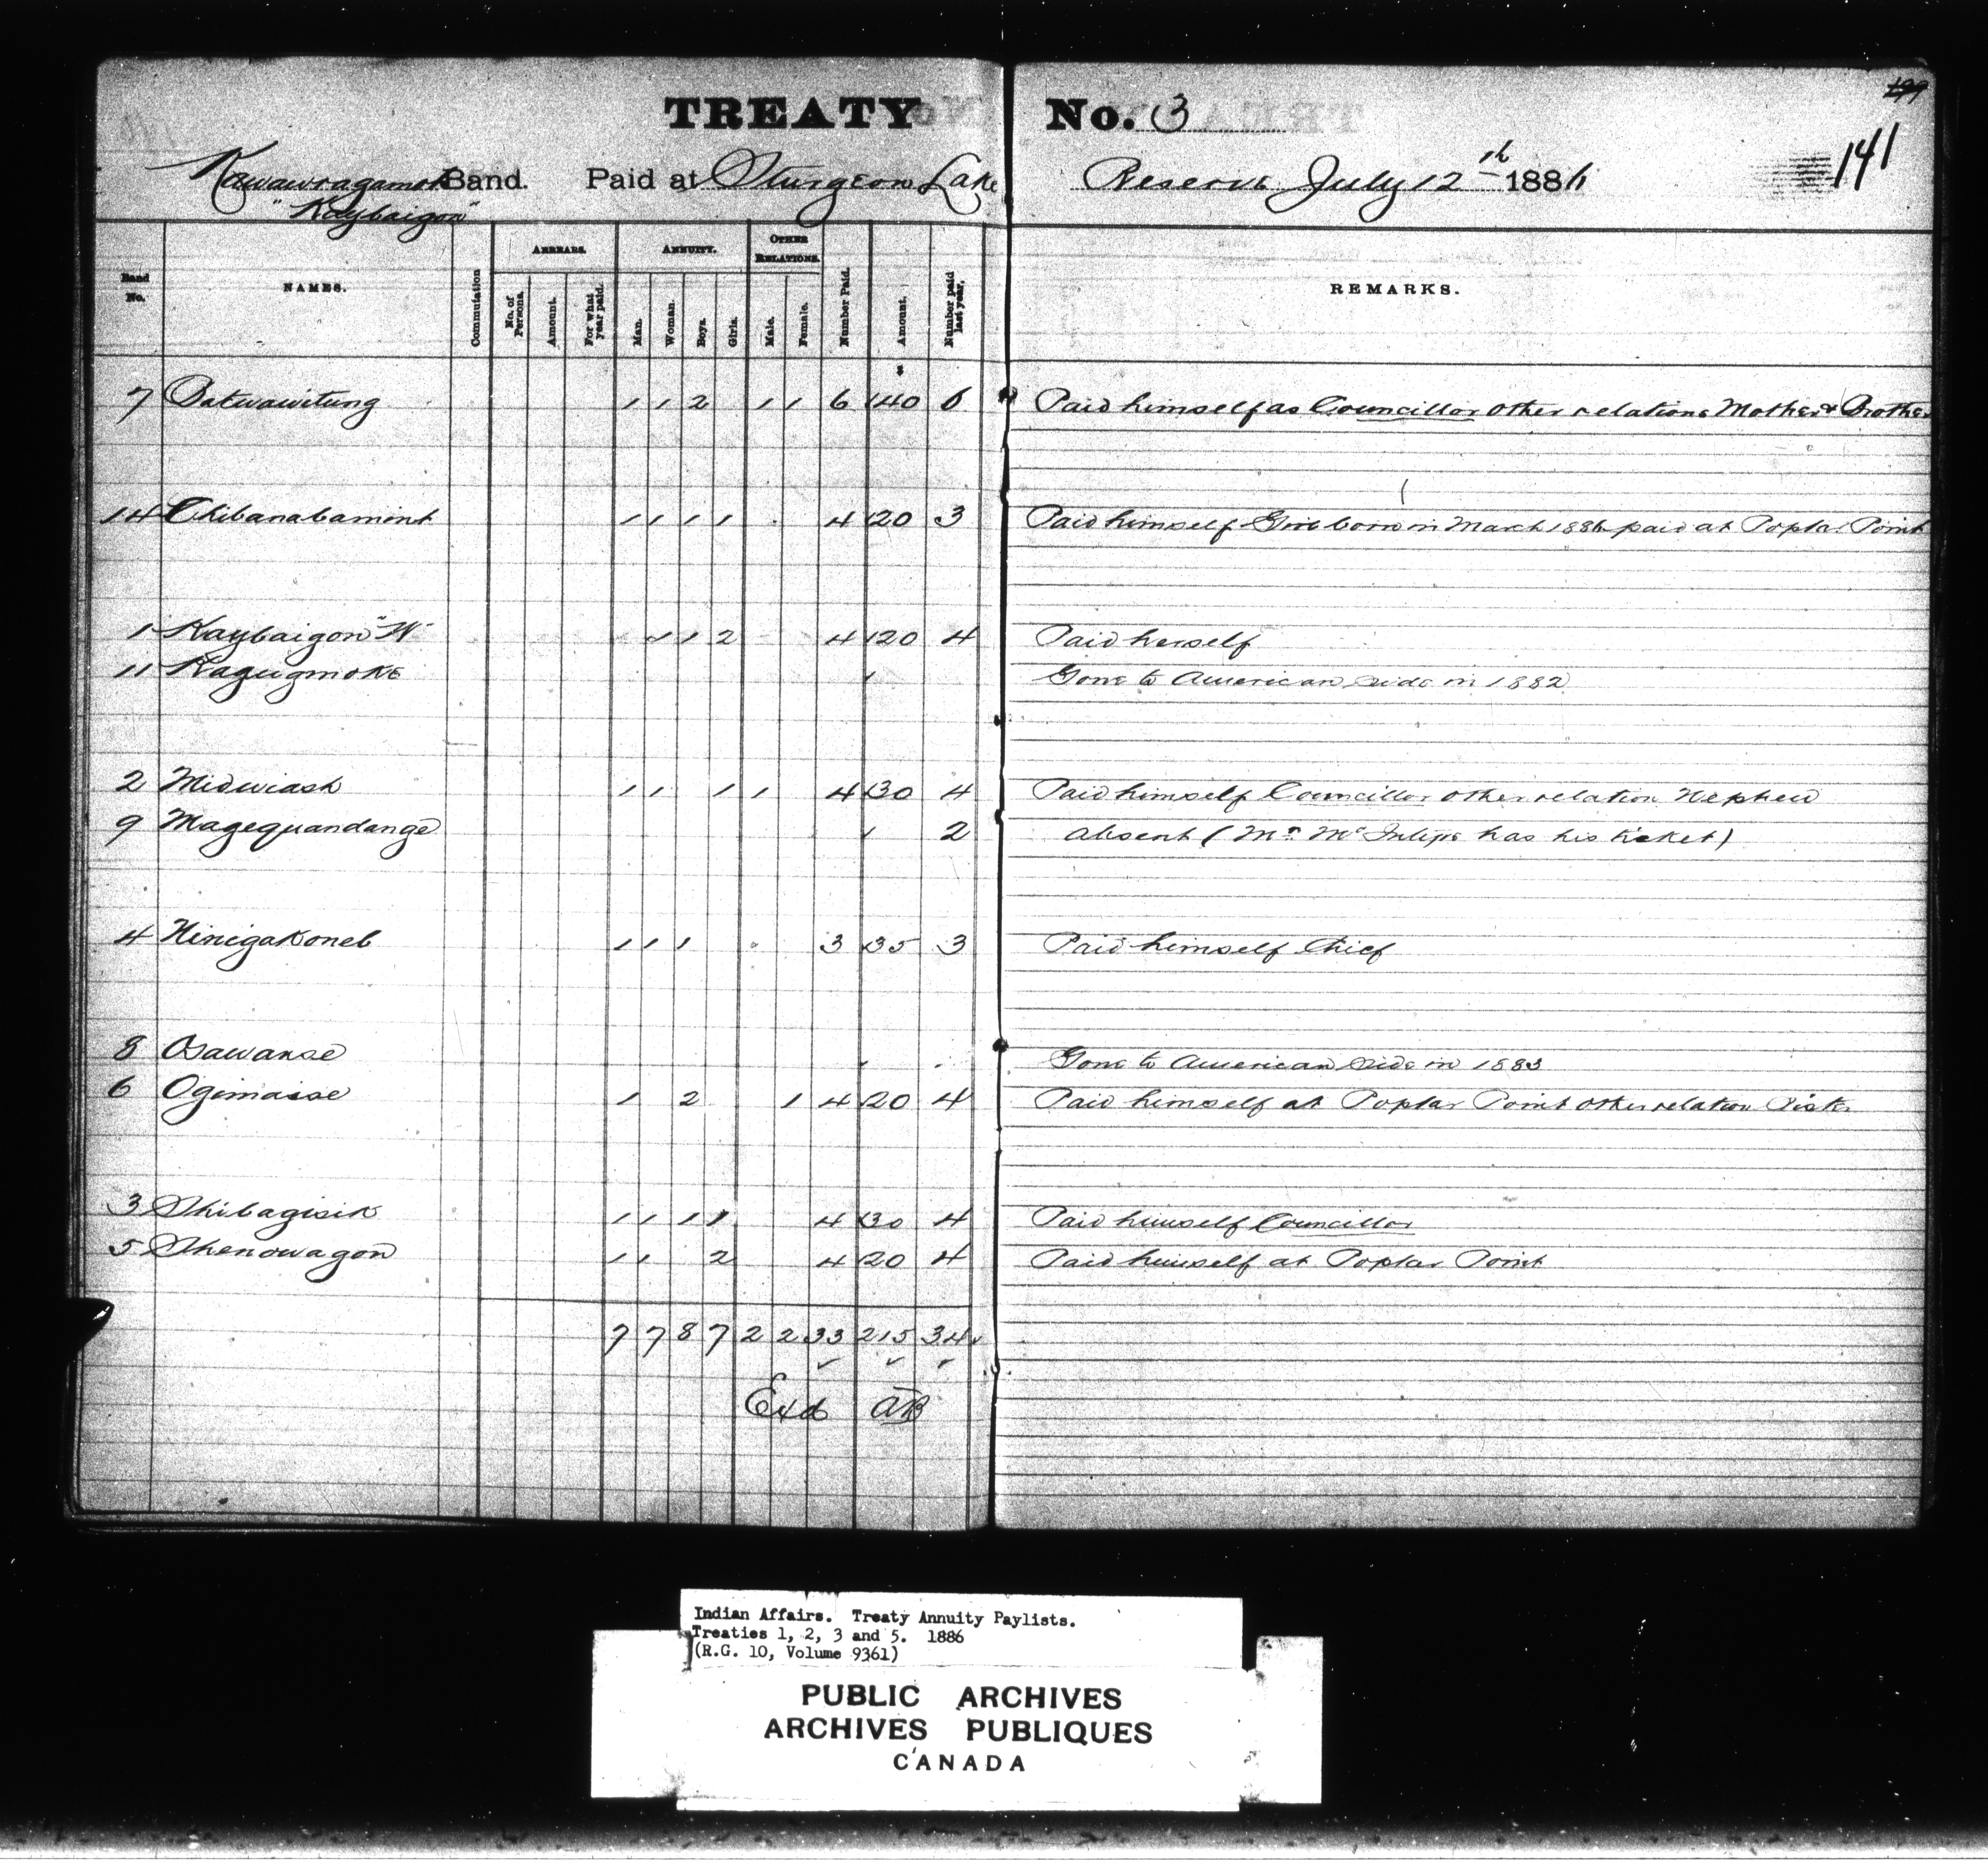 199
TREATY No. 3
141
Kawawiagamok Band. Paid at Sturgeon Lake Reserve July 12th 1886
"Kaybaigon"
Band No. NAMES. Commutation ARREARS. No. of Persons. Amount. For what year paid. ANNUITY. Man. Woman. Boys. Girls. OTHER RELATIONS. Male. Female. Number Paid. Amount. Number paid last year. REMARKS.
$
7 Batwawitung 1 1 2 1 1 6 40 6 Paid himself as Councillor other relations Mother & Brother
14 Chibanabamint 1 1 1 1 4 20 3 Paid himself Girl born in March 1886 paid at Poplar Point
1 Kaybaigon "W" 1 1 2 4 20 4 Paid herself
11 Kagugmoke Gone to American side in 1882
2 Midwiash 1 1 1 1 4 30 4 Paid himself Councillor other relation Nephew
9 Magequandange 2 absent (Mr. Mc has his ticket)
4 Ninigakoneb 1 1 1 3 35 3 Paid himself Chief
8 Osawanse Gone to American side in 1883
6 Ogimaise 1 2 1 4 20 4 Paid himself at Poplar Point other relation Sister
3 Shibagisik 1 1 1 1 4 30 4 Paid himself Councillor
5 Shenowagon 1 1 2 4 20 4 Paid himself at Poplar Point
7 7 8 7 2 2 33 215 34
Exd AB
Indian Affairs. Treaty Annuity Paylists.
Treaties 1, 2, 3 and 5. 1886
(R.G. 10, Volume 9361)
PUBLIC ARCHIVES
ARCHIVES PUBLIQUES
CANADA